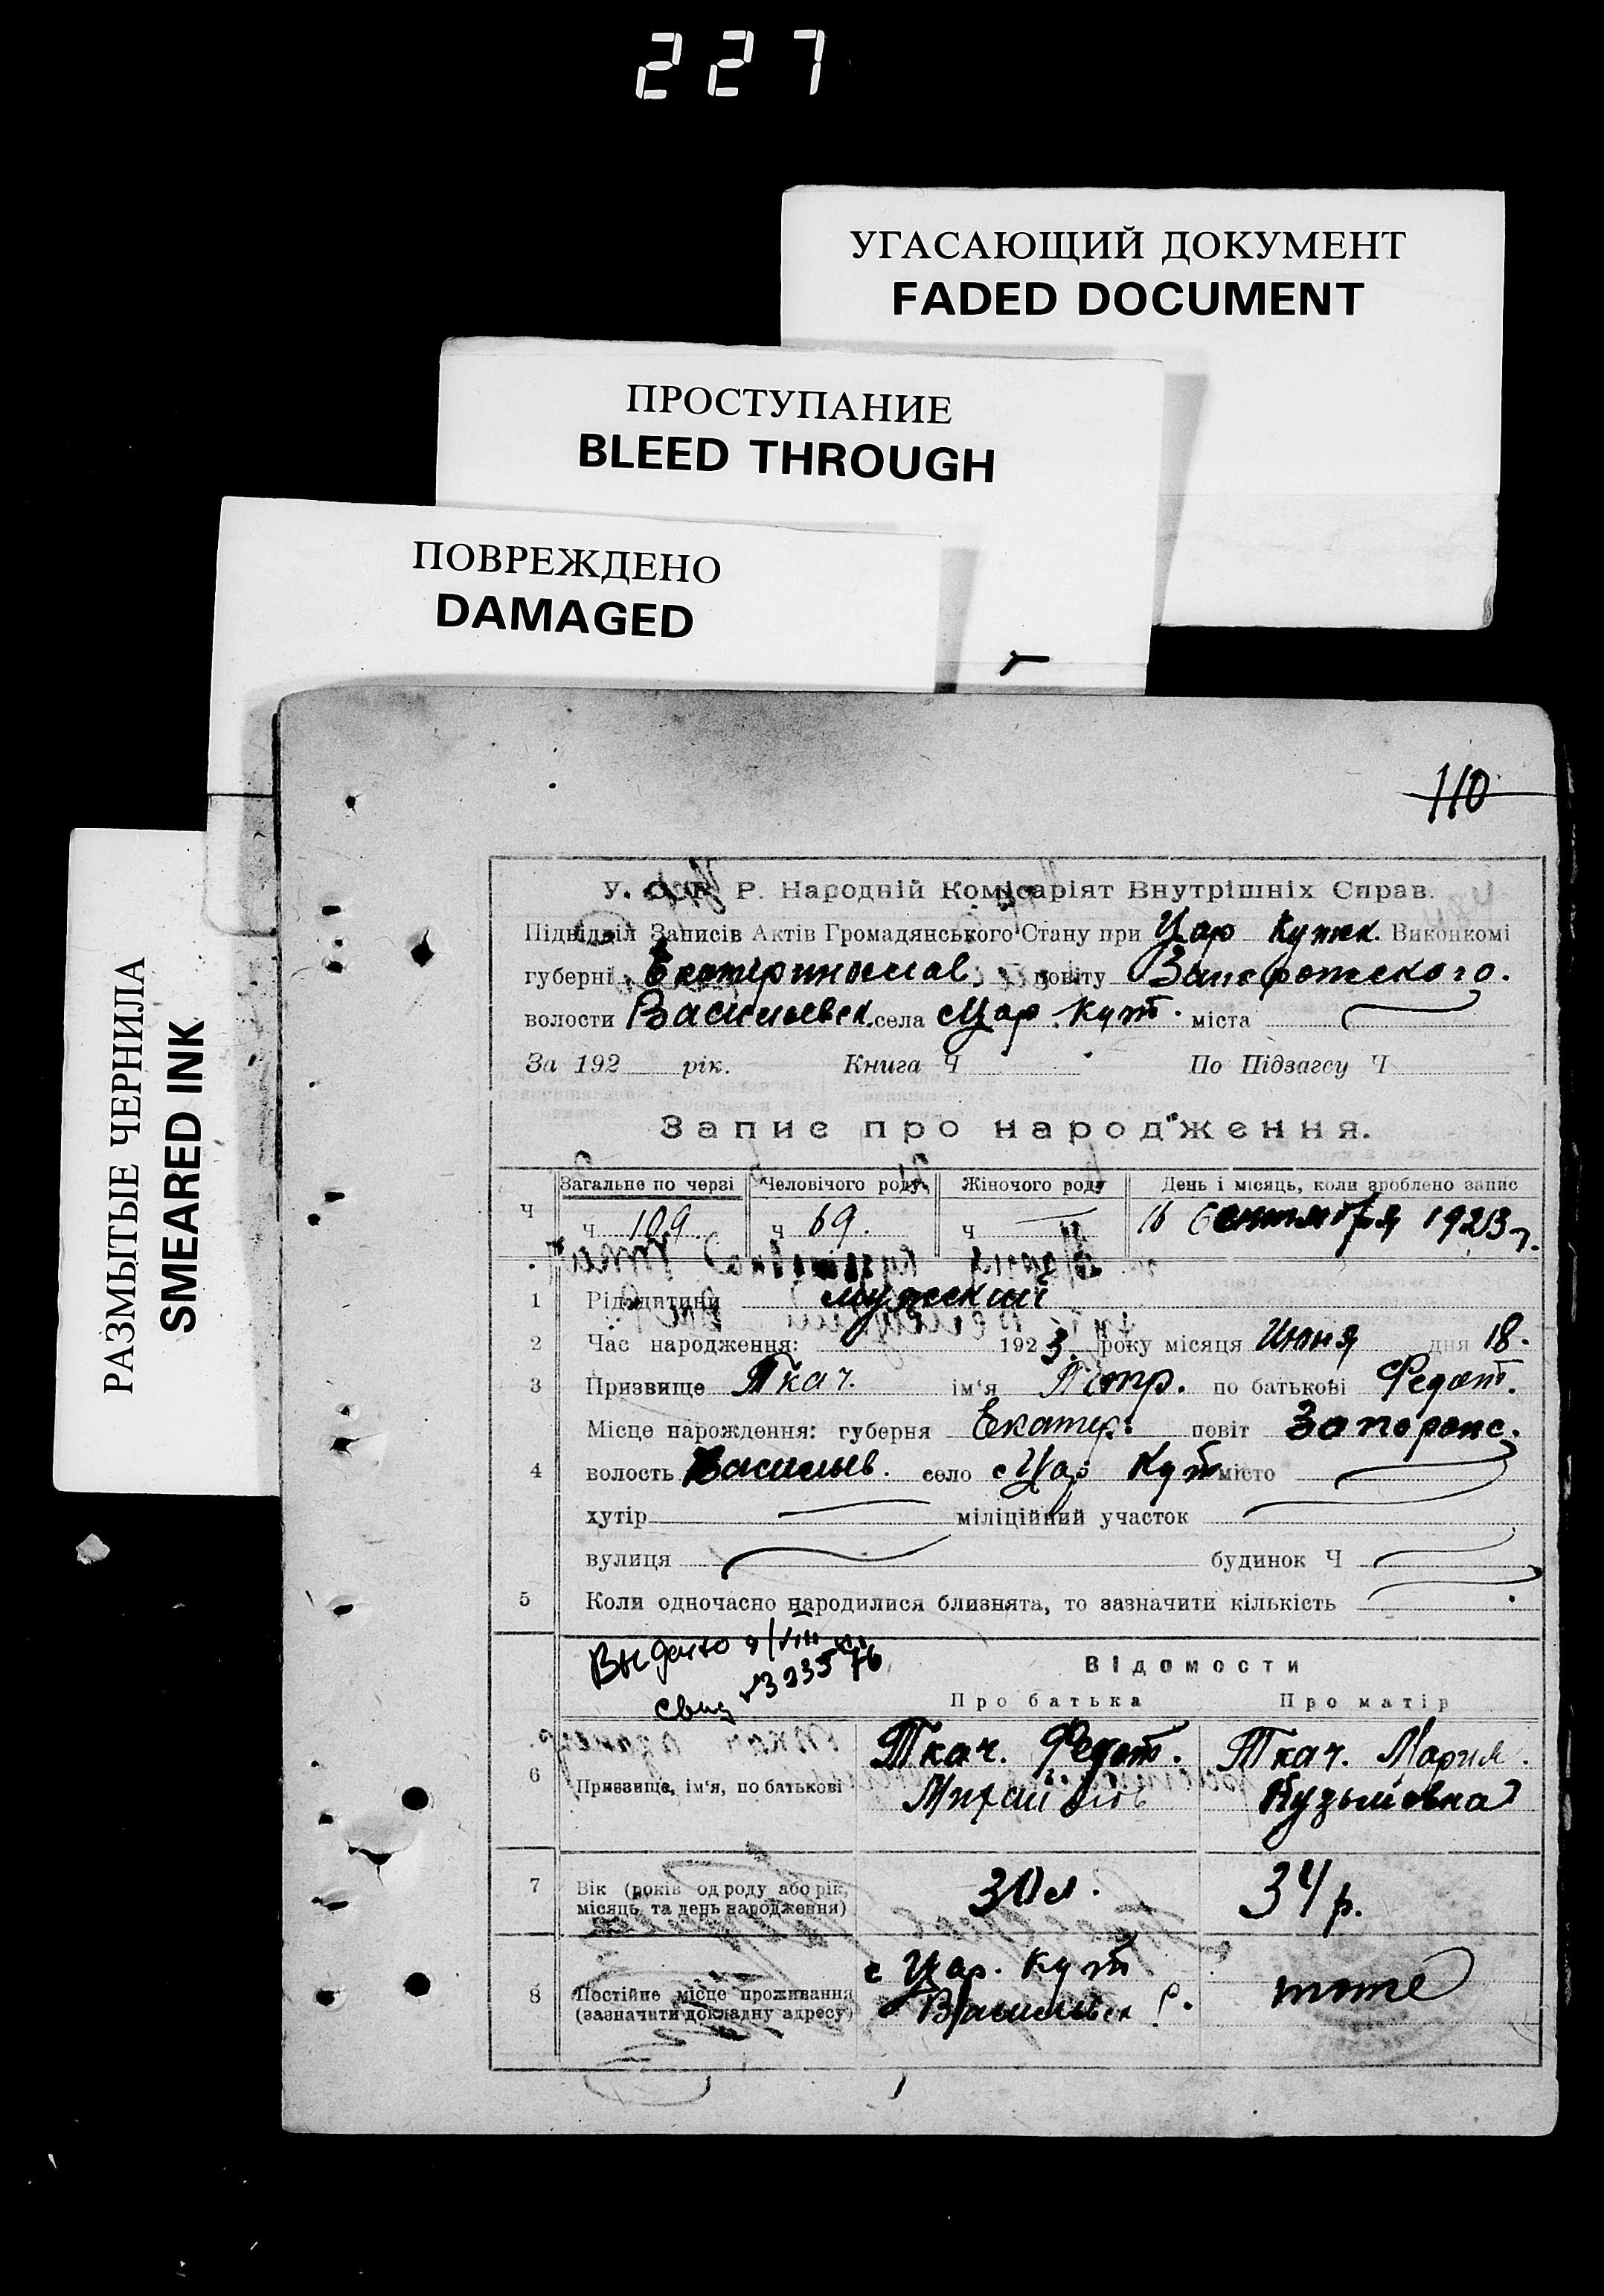 227
УГАСАЮЩИЙ ДОКУМЕНТ
FADED DOCUMENT
ПРОСТУПАНИЕ
BLEED THROUGH
ПОВРЕЖДЕНО
DAMAGED
РАЗМЫТЫЕ ЧЕРНИЛА
SMEARED INK
110
У. С. Р. Р. Народній Комісаріят Внутрішніх Справ.
Підвідділ Записів Актів Громадянського Стану при Цар Кутск. Виконкомі
губерні Екатеринослав. повіту Запорожского.
волости Васильевск. села Цар. Кут. міста
За 192 рік. Книга Ч По Підзагсу Ч
Запис про народження.
Ч Загальне по черзі Человічого роду Жіночого роду День і місяць, коли зроблено запис
ч 109 ч 69. ч 16 Сентября 1923 г.
1 Рід дитини мужский
2 Час народження: 1923. року місяця Июня дня 18.
3 Призвище Ткач. ім‘я Петр. по батькові Федот.
Місце народження: губерня Екатер. повіт Запорожс.
4 волость Васильев. село с Цар Кут місто
хутір міліційний участок
вулиця будинок Ч
5 Коли одночасно народилися близнята, то зазначити кількість
Выдано
свид
Відомости
Про батька Про матір
6 Призвище, ім‘я, по батькові
Ткач. Федот. Ткач. Мария.
Михайлов Кузьмовна
7 Вік (років од роду або рік, місяць та день народження) 30 л. 34 р.
8 Постійне місце проживання (зазначити докладну адресу)
с Цар. Кут тоже
Васильевск р.